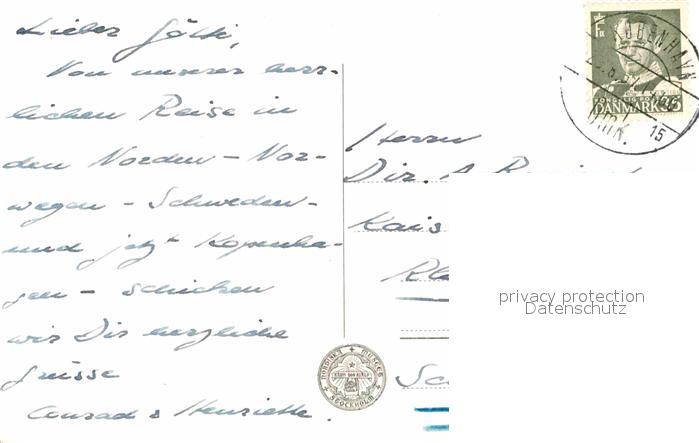 Lieber Götti,
Von unserer herr-
lichen Reise in
den Norden – Nor-
wegen – Schweden –
und jetzt Kopenha-
gen – schicken
wir Dir herzliche
Grüsse
Conrad & Henriette.
Herrn
Dir. A.
Kais
KØBENHAVN
OMK.
15
DANMARK 35
NORDISKA MUSEET
STOCKHOLM
privacy protection
Datenschutz